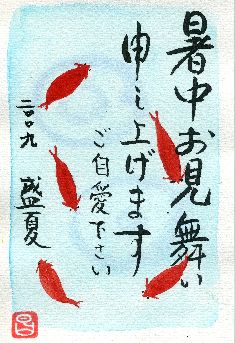 暑中お見舞い
申し上げます
ご自愛下さい
二〇〇九 盛夏